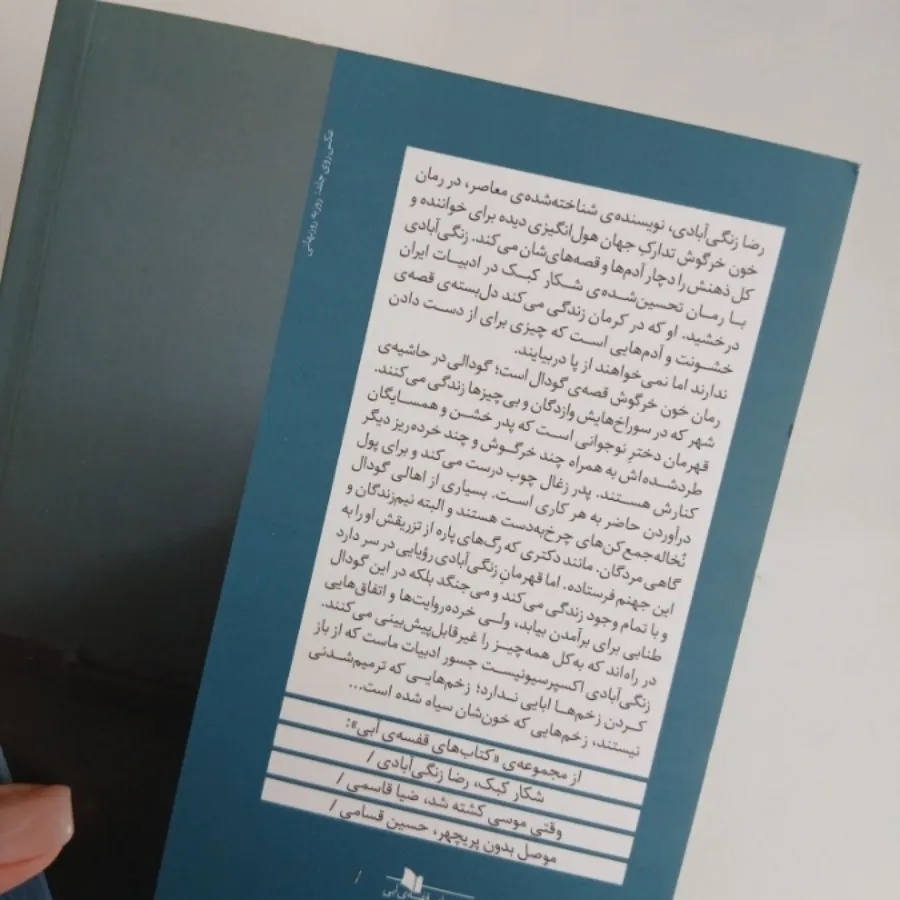 رضا زنگی‌آبادی، نویسنده‌ی شناخته‌شده‌ی معاصر، در رمان
خون خرگوش تدارکِ جهان هول‌انگیزی دیده برای خواننده و
کل ذهنش را دچار آدم‌ها و قصه‌های‌شان می‌کند. زنگی‌آبادی
با رمان تحسین‌شده‌ی شکار کبک در ادبیات ایران
درخشید. او که در کرمان زندگی می‌کند دل‌بسته‌ی قصه‌ی
خشونت و آدم‌هایی است که چیزی برای از دست دادن
ندارند اما نمی‌خواهند از پا دربیایند.
رمان خون خرگوش قصه‌ی گودال است؛ گودالی در حاشیه‌ی
شهر که در سوراخ‌هایش وازدگان و بی‌چیزها زندگی می‌کنند.
قهرمان دخترِ نوجوانی است که پدر خشن و همسایگان
طردشده‌اش به همراه چند خرگوش و چند خرده‌ریز دیگر
کنارش هستند. پدر زغال چوب درست می‌کند و برای پول
درآوردن حاضر به هر کاری است. بسیاری از اهالی گودال
نُخاله‌جمع‌کن‌های چرخ‌به‌دست هستند و البته نیم‌زندگان و
گاهی مردگان. مانند دکتری که رگ‌های پاره از تزریقش او را به
این جهنم فرستاده. اما قهرمانِ زنگی‌آبادی رؤیایی در سر دارد
و با تمام وجود زندگی می‌کند و می‌جنگد بلکه در این گودال
طنابی برای برآمدن بیابد، ولی خرده‌روایت‌ها و اتفاق‌هایی
در راه‌اند که به‌کل همه‌چیز را غیرقابل‌پیش‌بینی می‌کنند.
زنگی‌آبادی اکسپرسیونیست جسور ادبیات ماست که از باز
کردن زخم‌ها ابایی ندارد؛ زخم‌هایی که ترمیم‌شدنی
نیستند، زخم‌هایی که خون‌شان سیاه شده است...
از مجموعه‌ی «کتاب‌های قفسه‌ی آبی»:
شکار کبک، رضا زنگی‌آبادی /
وقتی موسی کشته شد، ضیا قاسمی /
موصل بدون پریچهر، حسین قسامی /
عکس روی جلد: روزبه روزبهانی
قفسه‌ی آبی